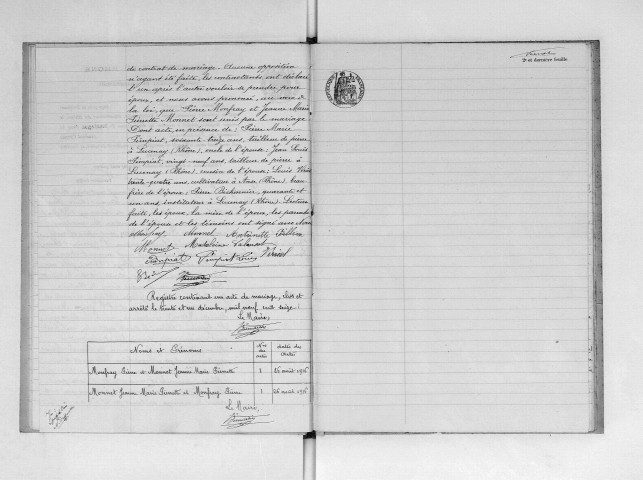 de contrat de mariage. Aucune opposition
n'ayant été faite, les contractants ont déclaré
l'un après l'autre vouloir se prendre pour
époux, et nous avons prononcé, au nom de
la loi, que Pierre Monfray et Jeanne Marie
Pierrette Monnet sont unis par le mariage
Dont acte, en présence de : Pierre Marie
Pimpiat, soixante treize ans, tailleur de pierre
à Lucenay (Rhône), oncle de l'épouse ; Jean Louis
Pimpiat, vingt-neuf ans, tailleur de pierre à
Lucenay (Rhône), cousin de l'épouse ; Louis
trente-quatre ans, cultivateur à Anse (Rhône), beau
frère de l'époux ; Pierre quarante et
un ans, instituteur à Lucenay (Rhône). Lecture
faite, les époux, la mère de l'époux, les parents
de l'épouse et les témoins ont signé avec Nous
Monfray Monnet Antoinette
Monnet
Pimpiat Louis
Registre contenant un acte de mariage, clos et
arrêté le trente et un décembre, mil neuf cent seize.
Le Maire,
Noms et Prénoms Nos des actes dates des actes
Monfray Pierre et Monnet Jeanne Marie Pierrette 1 26 août 1916
Monnet Jeanne Marie Pierrette et Monfray Pierre 1 26 août 1916
Le Maire,
2e et dernière feuille